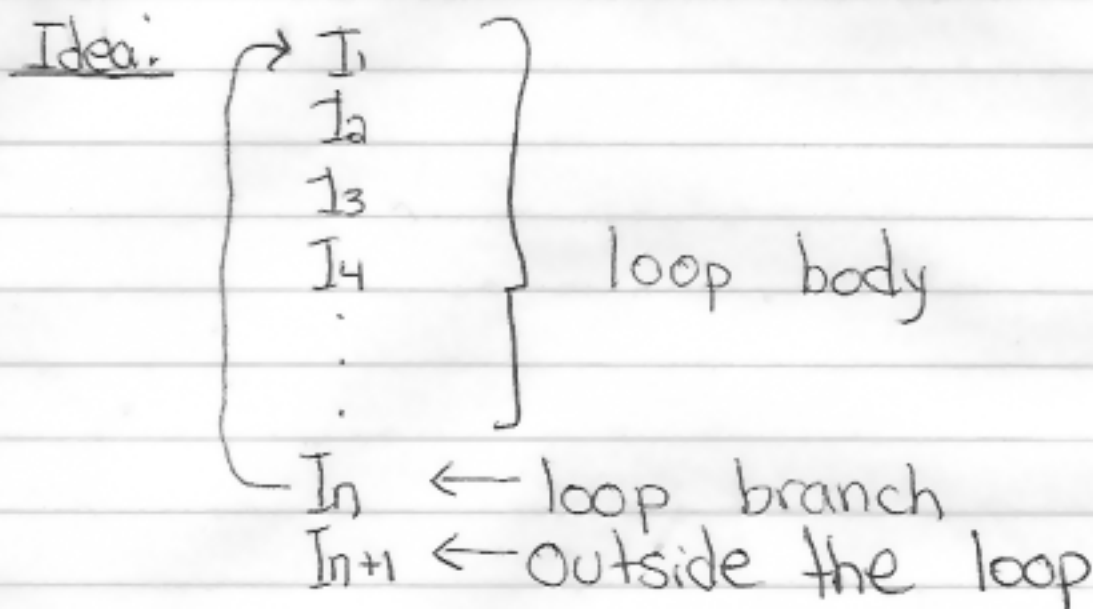 Idea: I1
I2
I3
I4
loop body
.
.
.
In ← loop branch
In+1 ← outside the loop